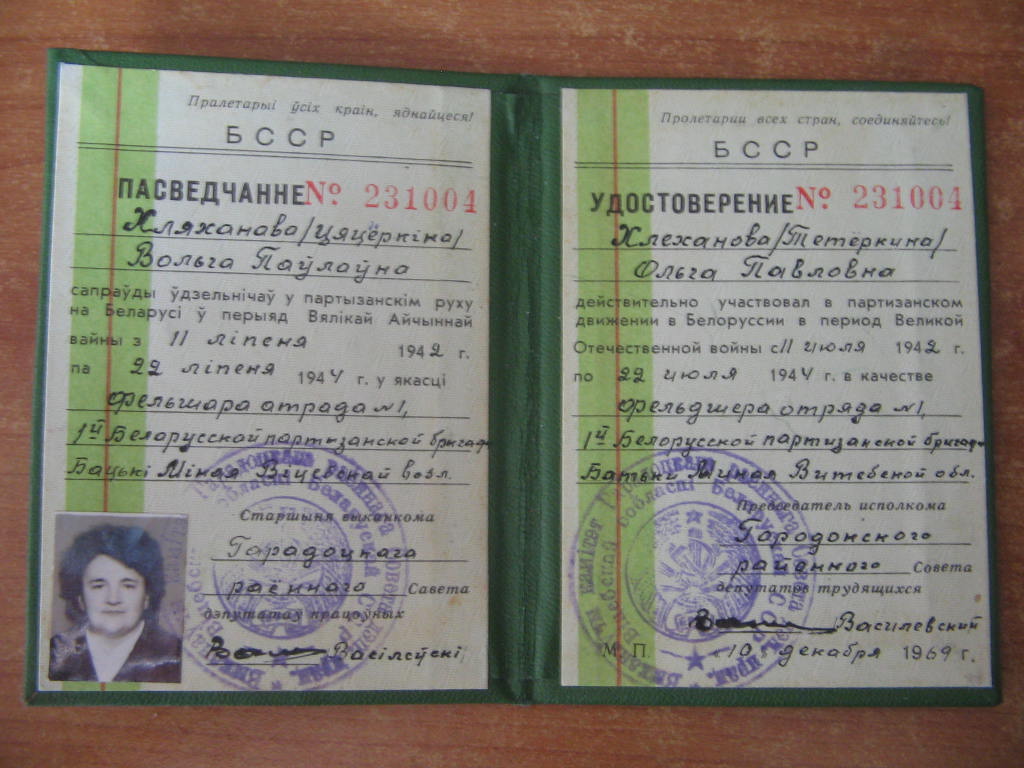 Пралетарыі ўсіх краін, яднайцеся!
БССР
ПАСВЕДЧАННЕ № 231004
Хляханава /Цяцёркіна/
Вольга Паўлаўна
сапраўды ўдзельнічаў у партызанскім руху
на Беларусі ў перыяд Вялікай Айчыннай
вайны з 11 ліпеня 1942 г.
па 22 ліпеня 1944 г. у якасці
фельшара атрада №1,
1й Белорусской партызанской бригады
Бацькі Міная Віцебскай вобл.
Старшыня выканкома
Гарадоцкага
раённага Савета
дэпутатаў працоўных
Васілеўскі
Пролетарии всех стран, соединяйтесь!
БССР
УДОСТОВЕРЕНИЕ № 231004
Хлеханова /Тетёркина/
Ольга Павловна
действительно участвовал в партизанском
движении в Белоруссии в период Великой
Отечественной войны с 11 июля 1942 г.
по 22 июля 1944 г. в качестве
фельдшера отряда №1,
1й Белорусской партизанской бригады
Батьки Миная Витебской обл.
Председатель исполкома
Городокского
районного Совета
депутатов трудящихся
Василевский
М. П. 10 декабря 1969 г.